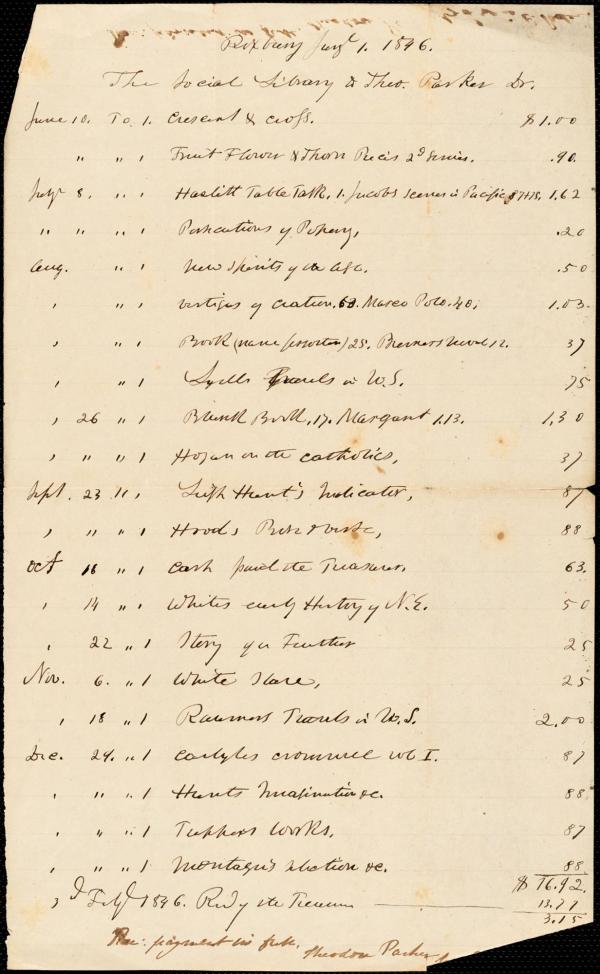 Roxbury Jany 1. 1846.
The Social Library to Theo. Parker Dr.
June 10. To 1. Crescent & Cross. $1.00
" " 1 Fruit Flower & Thorn Pieces 2d Series. .90
July 8. " 1 Hazlitt Table Talk. 1. Jacobs Scenes in Pacific 1.62
" " " 1 Persecutions of Popery, .20
Aug. " 1 New Spirits of the Age. .50
, " 1 Vestiges of Creation. 63. Marco Polo. 40. 1.03.
, " 1 Book (name forgotten) 25. Bremers Novel 12. 37
, " 1 Lyells Travels in U.S. 75
, 26 " 1 Blank Book, 17. Margaret 1.13. 1,30
, " " 1 Hogan on the Catholics, 37
Sept. 23 " , Leigh Hunt's Indicator, 87
, " " 1 Hoods Prose & Verse, 88
Oct 18 " 1 Cash paid the Treasurer. 63.
, 14 " 1 Whites early History of N.E. 50
, 22 " 1 Story of a Feather 25
Nov. 6. " 1 White Slave, 25
, 18 " 1 Raumers Travels in U.S. 2.00
Dec. 24. " 1 Carlyles Cromwell vol I. 87
, " " 1 Hunts Imagination &c. 88
, " " 1 Tuppers Works, 87
, " " 1 Montagu's selection &c. 88
$16.92.
, Feby 1846. Recd of the Treasurer 13.77
3.15
Rec: payment in full. Theodore Parker